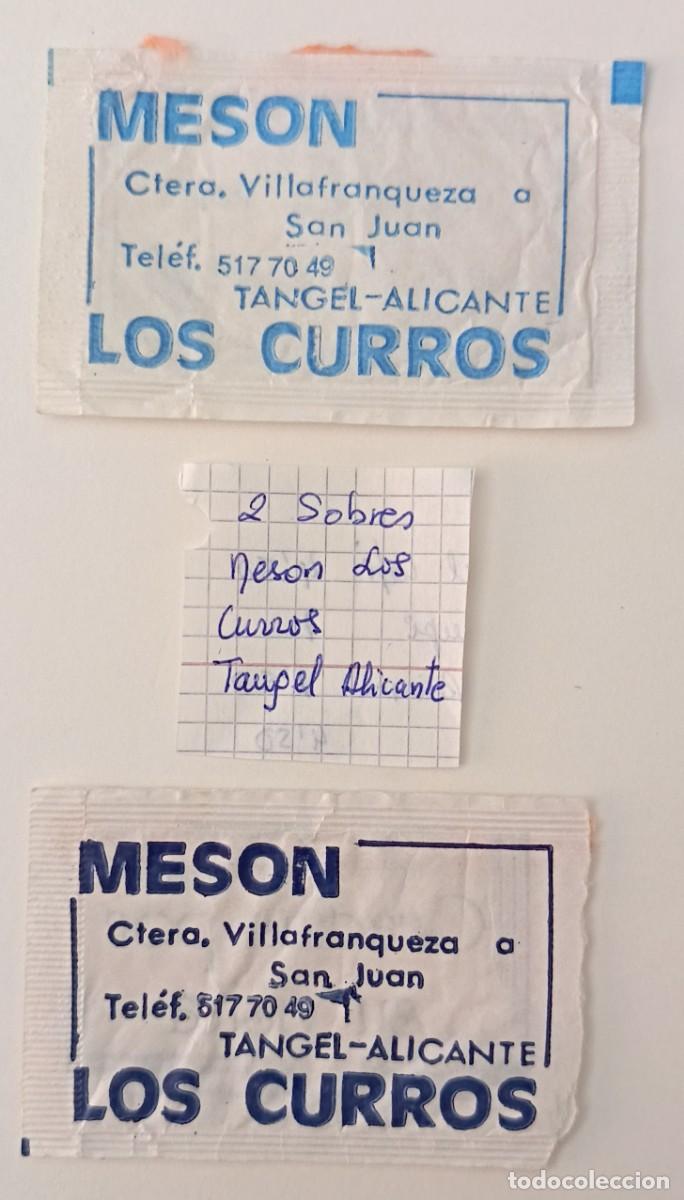 MESON
Ctera. Villafranqueza a
San Juan
Teléf. 517 70 49
TANGEL-ALICANTE
LOS CURROS
2 Sobres
Meson Los
Curros
Tangel Alicante
MESON
Ctera. Villafranqueza a
San Juan
Teléf. 517 70 49
TANGEL-ALICANTE
LOS CURROS
todocoleccion